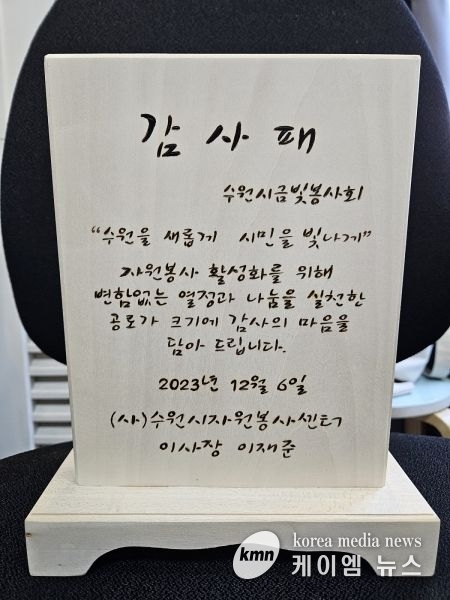 감사패
수원시금빛봉사회
"수원을 새롭게 시민을 빛나게"
자원봉사 활성화를 위해
변함없는 열정과 나눔을 실천한
공로가 크기에 감사의 마음을
담아 드립니다.
2023년 12월 6일
(사)수원시자원봉사센터
이사장 이재준
kmn korea media news
케이엠 뉴스